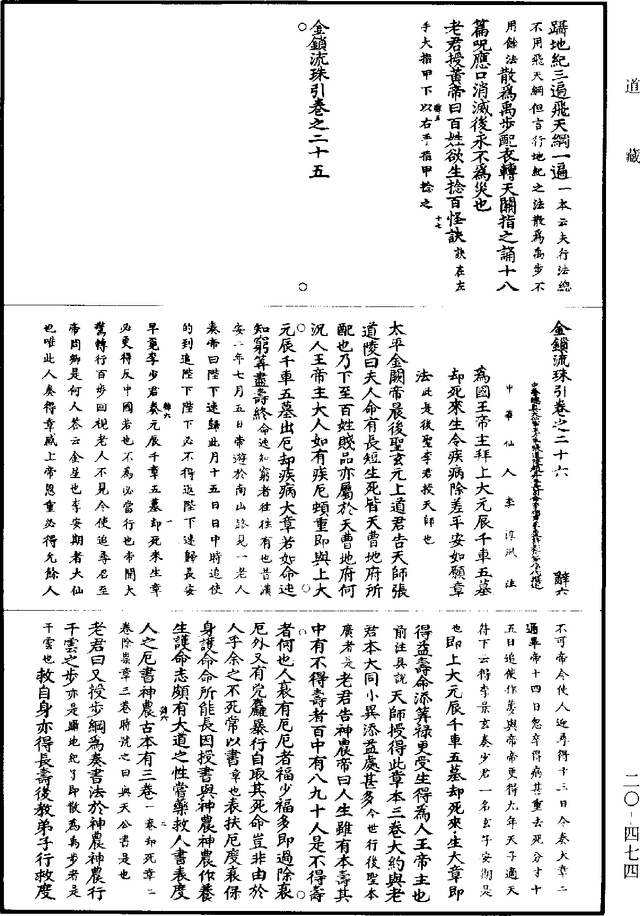 道藏
躡地紀三遍飛天綱一遍一本云夫行法總
不用飛天綱但言行地紀之法散爲禹步不
用餘法散爲禹步配衣轉天關指之誦十八
篇呪應口消滅後永不爲災也
老君授黃帝曰百姓欲生捻百怪訣訣在左
手大指甲下以右手指甲捻之
十七
金鎖流珠引卷之二十五
金鎖流珠引卷之二十六 辭六
中華仙人李淳風注
爲國王帝主拜上大元辰千車五墓
却死來生令疾病除差平安如願章
法此是後聖李君授天師也
太平金闕帝晨後聖玄元上道君告天師張
道陵曰夫人命有長短生死皆天曹地府所
配也乃下至百姓賤品亦屬於天曹地府何
況人王帝主大人如有疾厄頓重即與上大
元辰千車五墓出厄却疾病大章若如命运
知窮筭盡壽終命運知窮者往往有也昔漢
安二年七月五日帝遊於南山路見一老人
奏帝曰陛下速歸此月十五日日中時追使
的到追陛下陛下必不得返陛下速歸長安
早覓李少君奏元辰千章五墓却死來生章
必更得反中國若也不爲必當行也帝聞大
驚轉行百步回視老人不見今使追尋名至
帝問卿是何人答云金星也李安期者大仙
也唯此人奏得章感上帝恩重必得允餘人
不可帝令使人近尋得十三日令奏大章二
通畢帝十四日忽卒得病甚重去死分寸十
五日追使作蔑與帝帝更得六年天子適天
符下云得李景玄奏少君一名玄子安期是
也即上大元辰千車五墓却死來生大章即
得益壽命添筭祿更受生得爲人王帝主也
前注具說天師授得此章本三卷大約與老
君本大同小異添益處甚多今世行後聖本
廣者是老君告神農帝曰人生雖有本壽其
中有不得壽者百中有八九十人是不得壽
者何也人衰有厄厄者福少福多即過除衰
厄外又有兇麤暴行自取其死命豈非由於
人乎余之不死常以書章也表扶厄度衰保
身護命命所能長因授書與神農神農作養
生護命志頗有大道之性嘗藥救人書表度
人之厄書神農古本有三卷一卷却死章二
卷除祟章三卷時說之曰與天公書是也
老君曰又授步綱爲奏書法於神農神農行
千雲之步亦是躡地紀了即散爲禹步者是
千雲也救自身亦得長壽後教弟子行救度
二〇-四七四